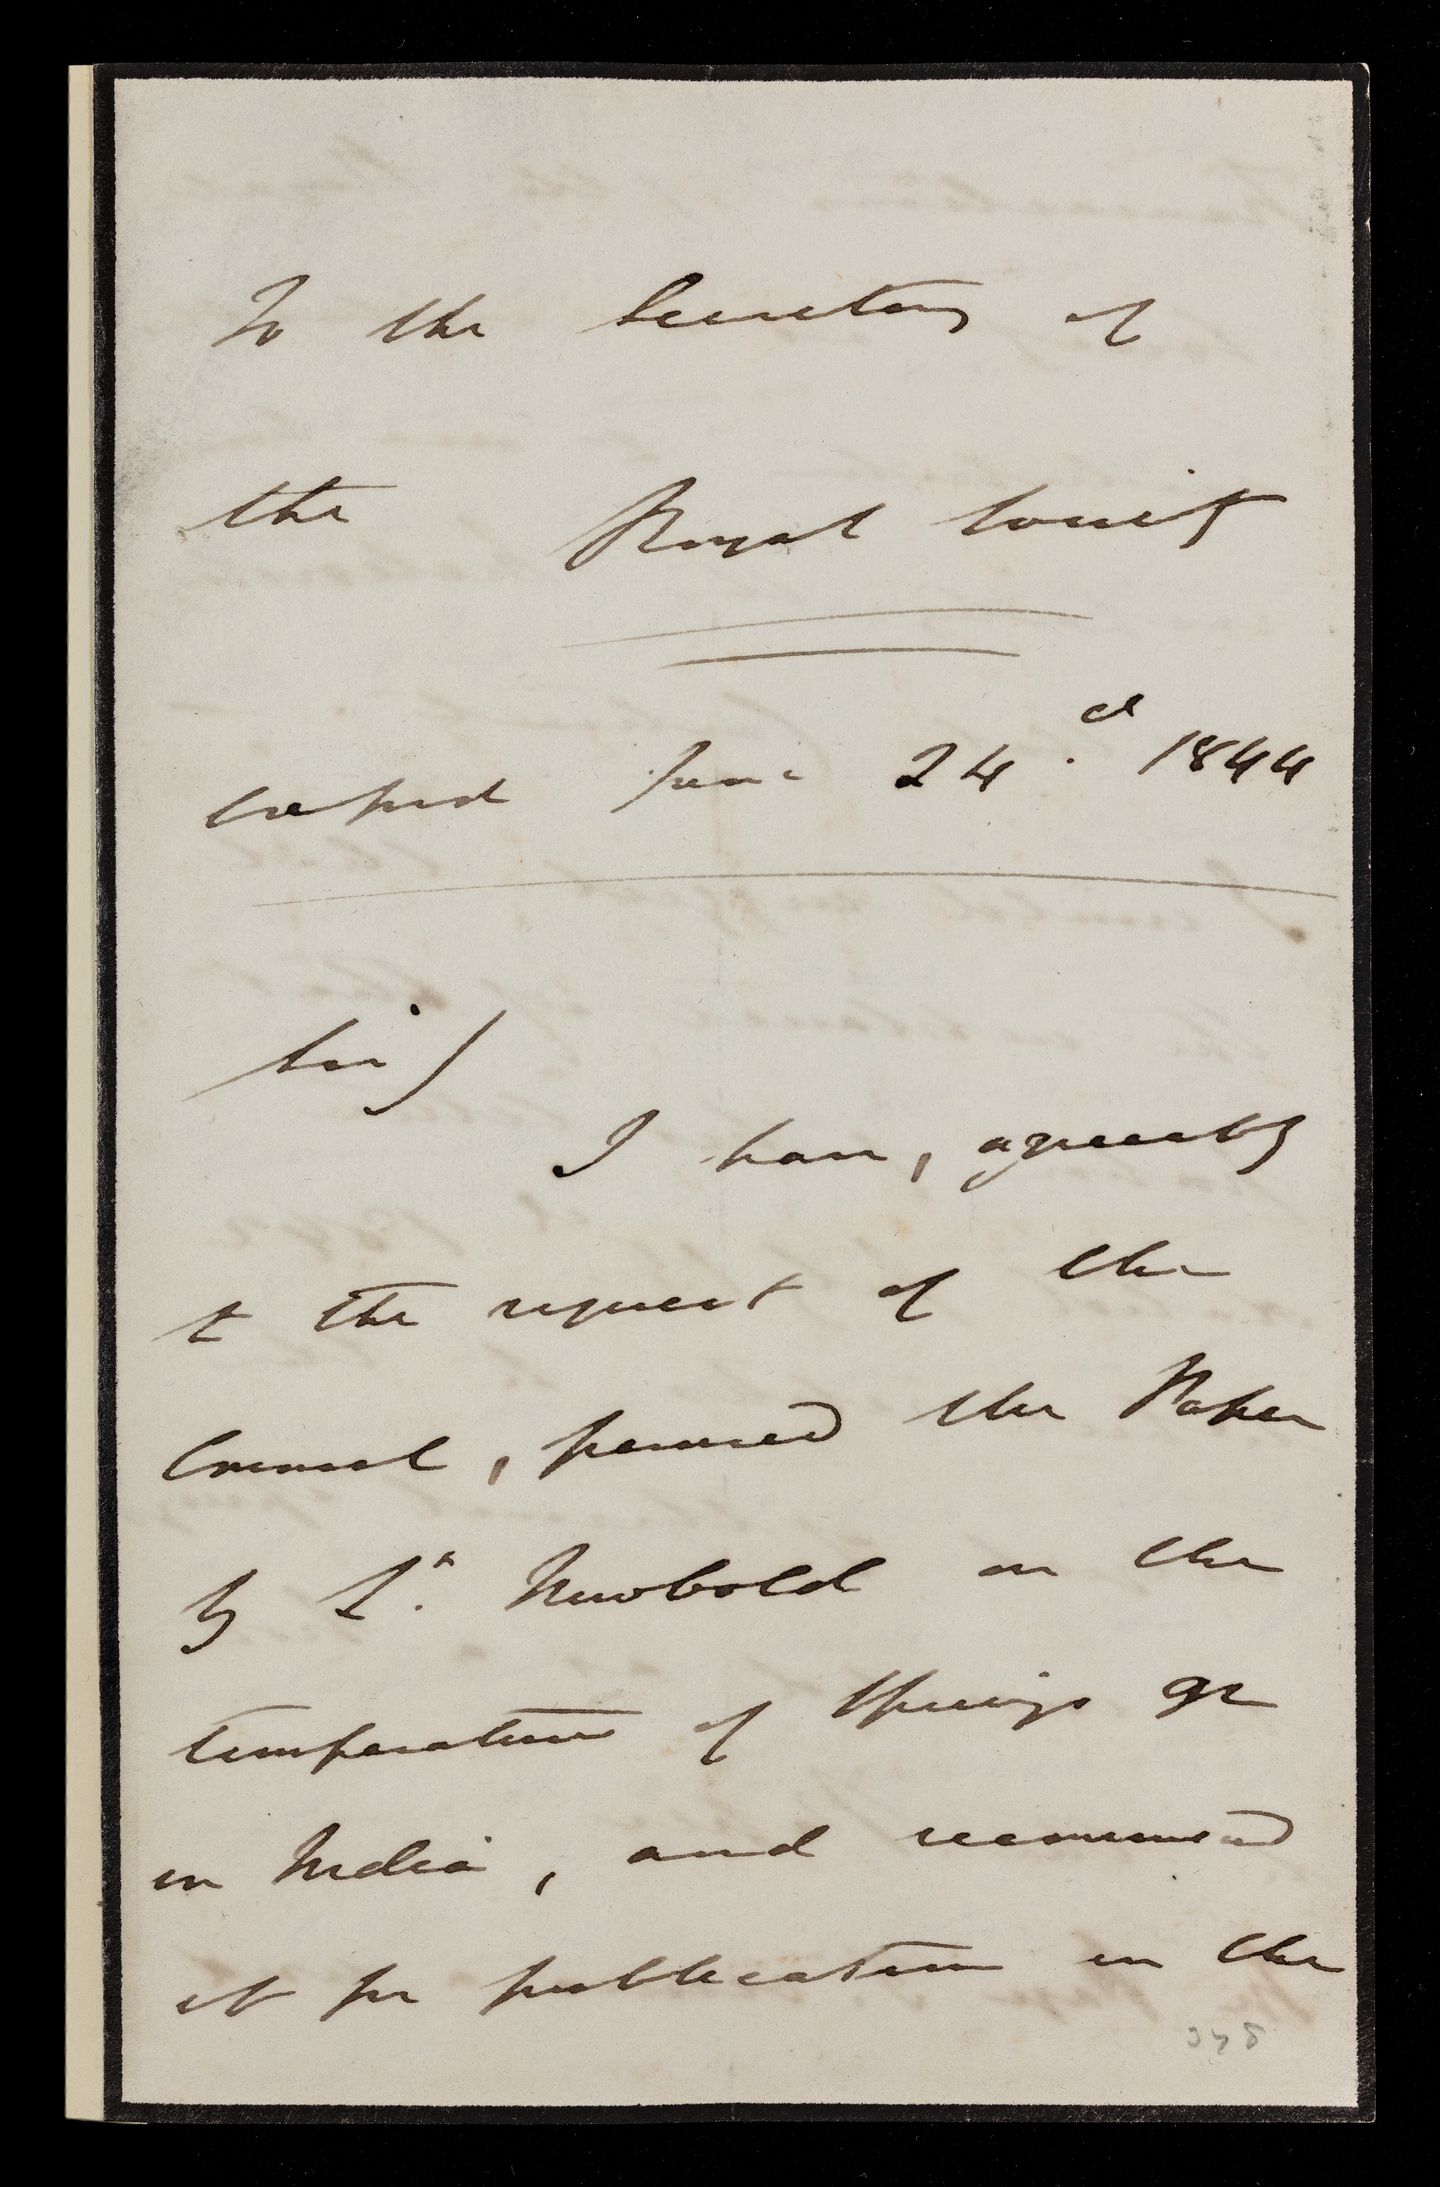 To the Secretary of
the Royal Society
Oxford June 24.d 1844
Sir/
I have, agreeably
to the request of the
Council, perused the Paper
by Lt. Newbold on the
temperature of Springs &c
in India, and recommend
it for publication in the
278